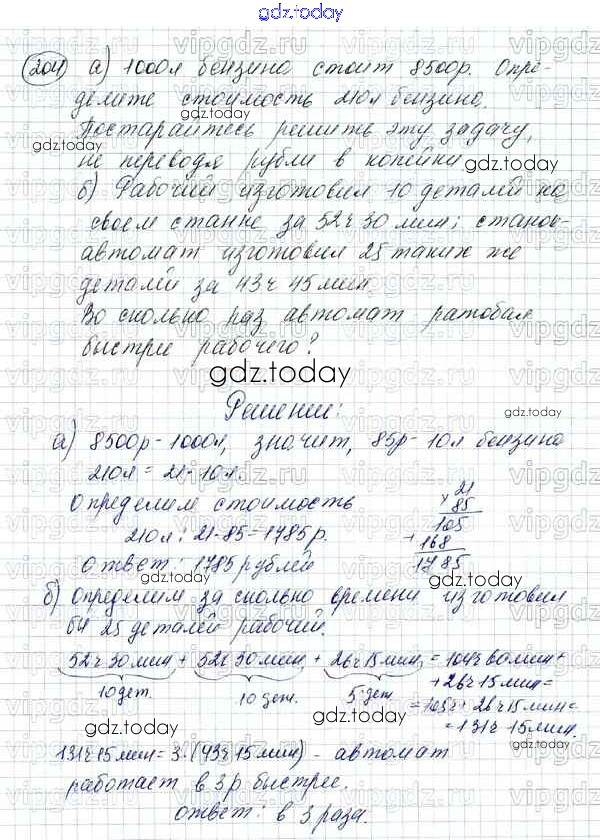 gdz.today
204 а) 1000л бензина стоит 8500р. Опре-
делите стоимость 210л бензина.
Постарайтесь решить эту задачу,
не переводя рубли в копейки
gdz.today
б) Рабочий изготовил 10 деталей на
gdz.today
своем станке за 52ч 30 мин; станок-
автомат изготовил 25 таких же
деталей за 43ч 45мин.
Во сколько раз автомат работал
быстрее рабочего?
gdz.today
Решение:
gdz.today
а) 8500р - 1000л, значит, 85р - 10л бензина
210л = 21 · 10л.
Определим стоимость
210л: 21·85 = 1785р.
Ответ: 1785 рублей
× 21
85
105
+ 168
1785
gdz.today
gdz.today
б) Определим за сколько времени изготовил
бы 25 деталей рабочий.
gdz.today
52ч 30 мин + 52ч 30 мин + 26ч 15 мин = 104ч 60 мин +
+ 26ч 15 мин =
= 105ч + 26ч 15 мин =
= 131ч 15 мин.
10 дет. 10 дет. 5 дет
gdz.today
gdz.today
131ч 15 мин = 3 · (43ч 45 мин) - автомат
работает в 3 р быстрее.
gdz.today
Ответ: в 3 раза.